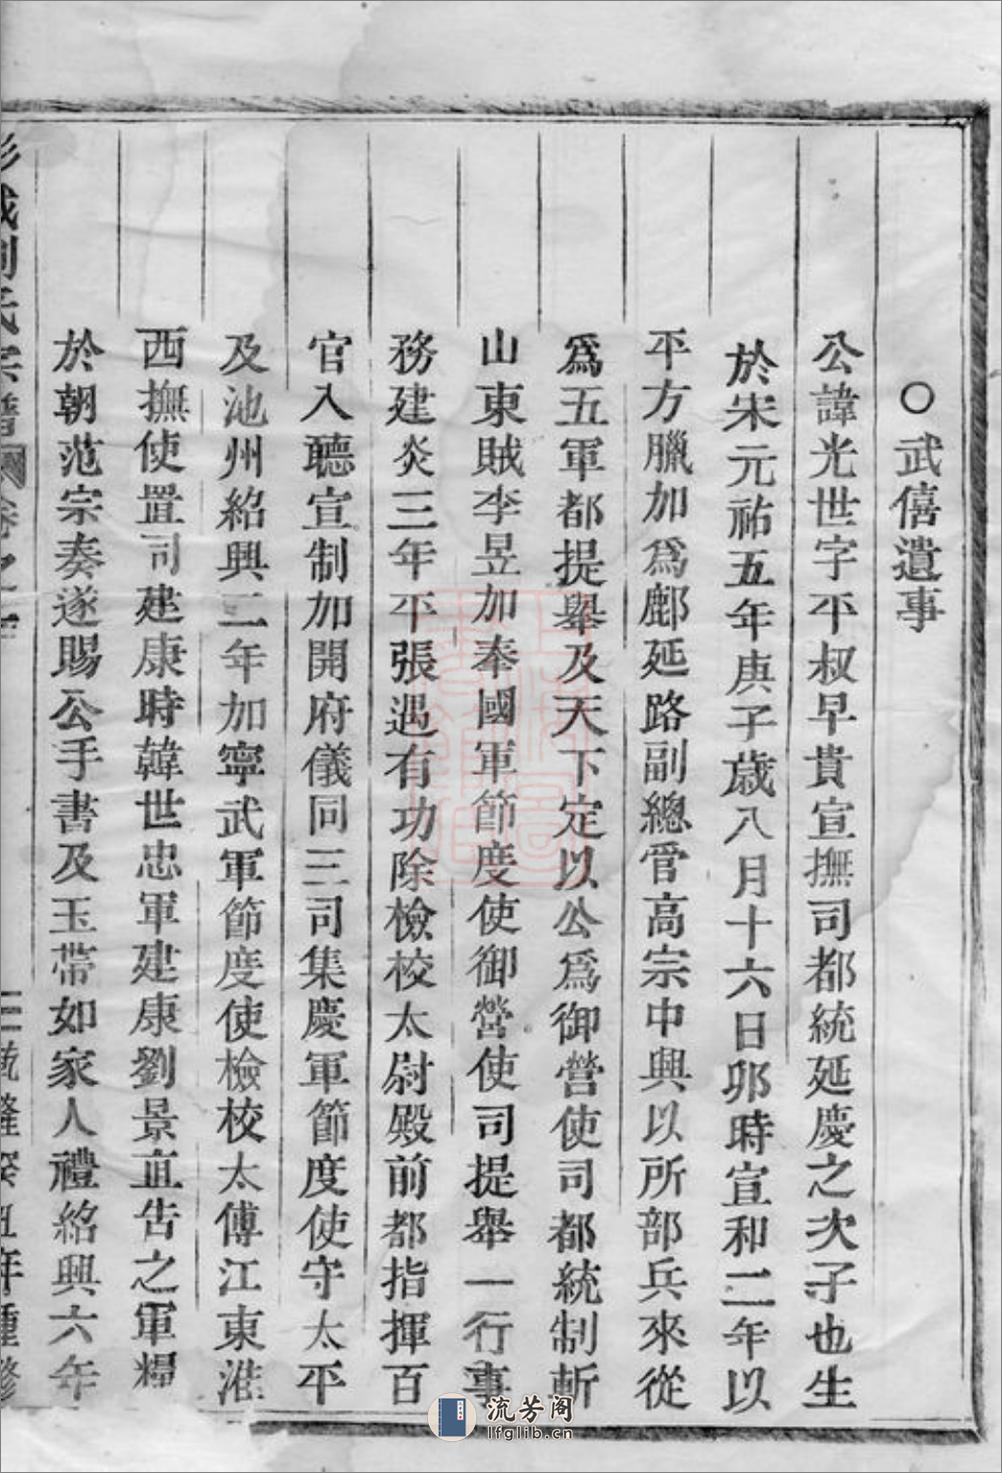 ○武僖遺事
公諱光世字平叔早貴宣撫司都統延慶之次子也生
於宋元祐五年庚子歲八月十六日卯時宣和二年以
平方臘加爲鄜延路副總管高宗中興以所部兵來從
爲五軍都提舉及天下定以公爲御營使司都統制斬
山東賊李昱加奉國軍節度使御營使司提舉一行事
務建炎三年平張遇有功除檢校太尉殿前都指揮百
官入聽宣制加開府儀同三司集慶軍節度使守太平
及池州紹興二年加寧武軍節度使檢校太傅江東淮
西撫使置司建康時韓世忠軍建康劉景直告之軍糧
於朝范宗奏遂賜公手書及玉帶如家人禮紹興六年
彭城劉氏宗譜 卷之
二 乾隆癸丑年重修
流芳阁
lfglib.cn